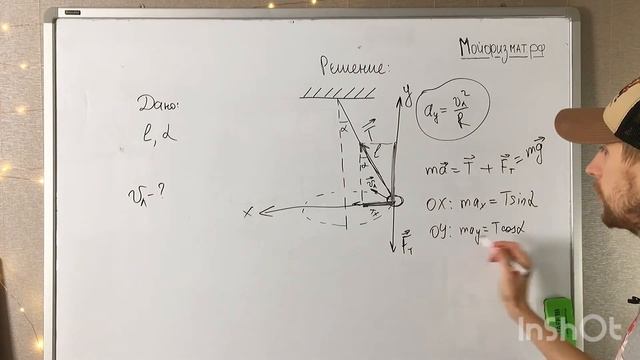 Мойфизмат.рф
Решение:
Дано:
l, α
υл - ?
y
aᵧ = υл² / R
α
T⃗
l
α
υ⃗л
Tₓ
x
F⃗т
ma⃗ = T⃗ + F⃗т = mg⃗
OX: maₓ = T sinα
OY: maᵧ = T cosα
InShOt